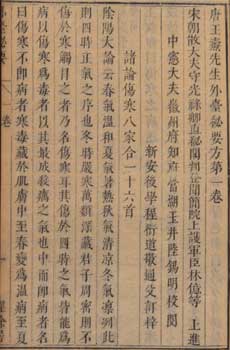 唐王燾先生外臺秘要方第一卷
宋朝散大夫守光祿卿直秘閣判登聞簡院上護軍臣林億等 上進
中憲大夫徽州府知府當湖王井陸錫明校閱
新安後學程衍道敬通父訂梓
諸論傷寒八家合一十六首
陰陽大論云春氣溫和夏氣暑熱秋氣清涼冬氣凛冽此
則四時正氣之序也冬時嚴寒萬類深藏君子周密則不
傷於寒觸冐之者乃名傷寒耳其傷於四時之氣皆能為
病以傷寒為毒者以其最成殺癘之氣也中而即病者名
曰傷寒不即病者寒毒藏於肌膚中至春變為溫病至夏